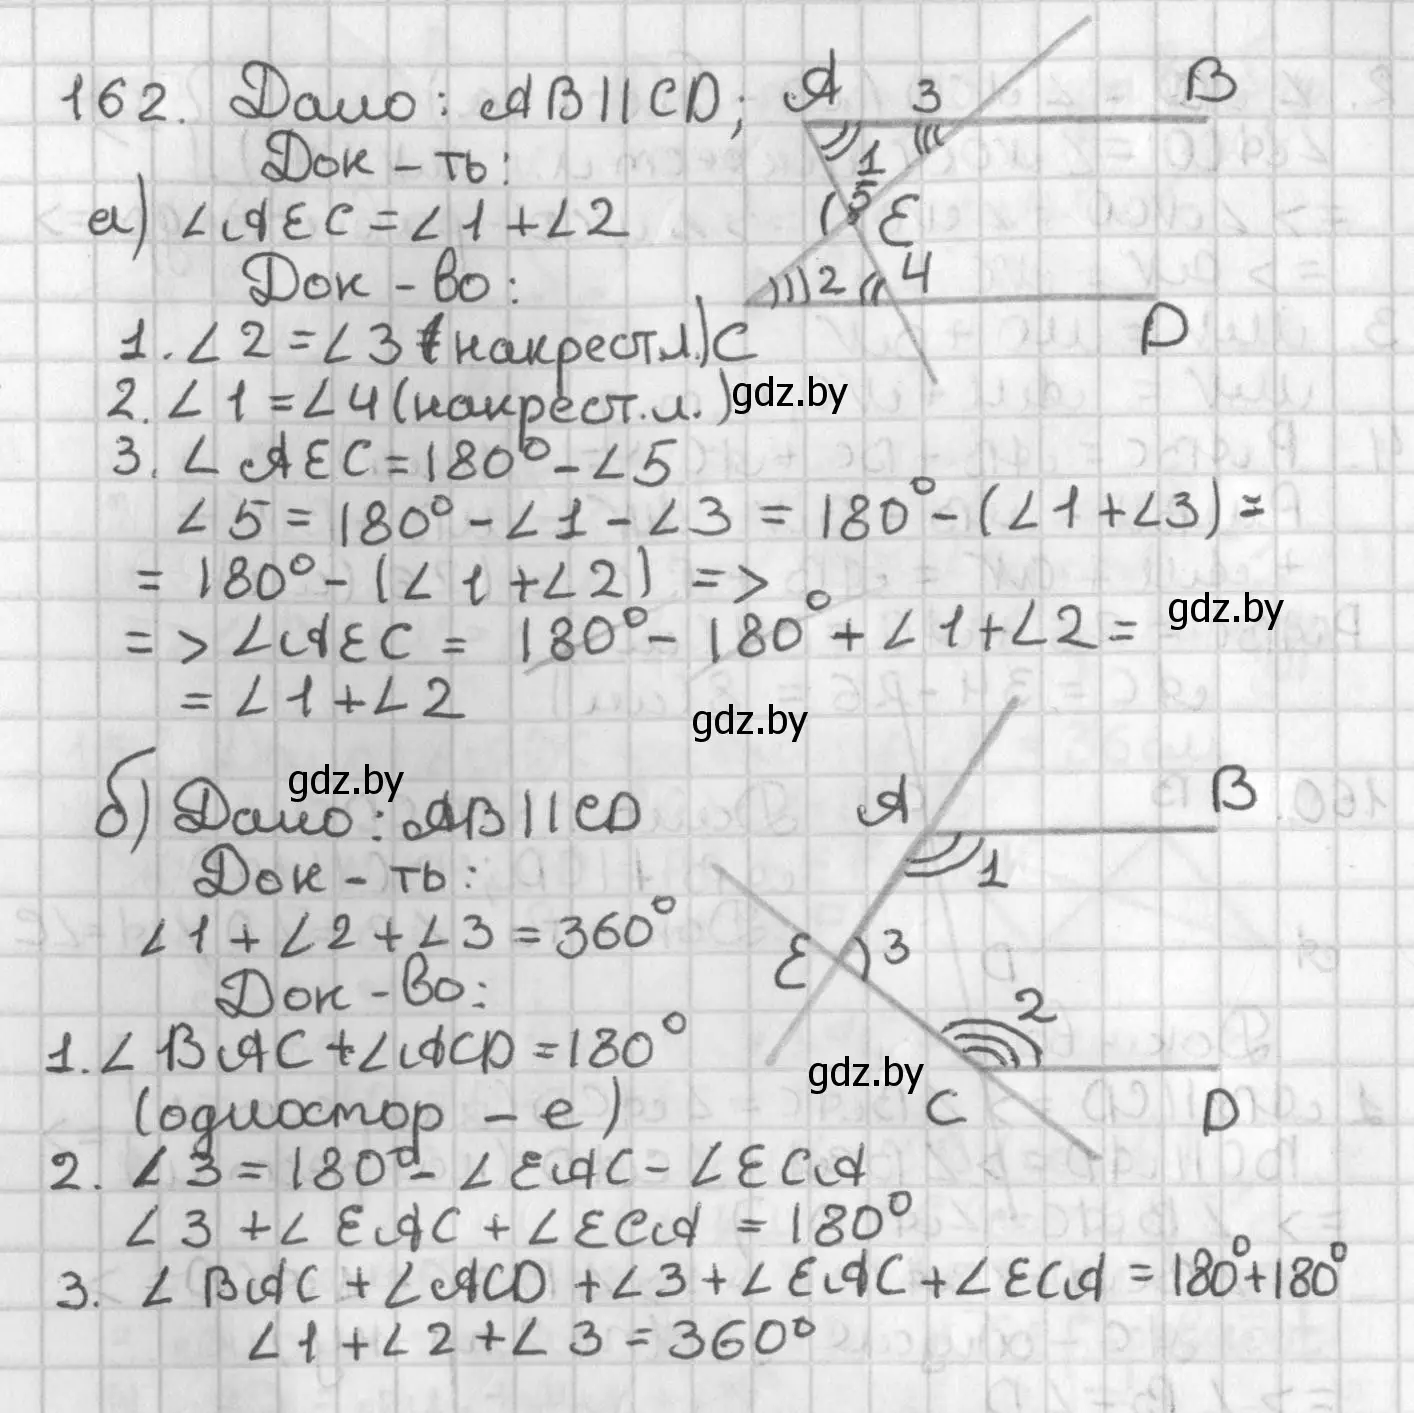 162. Дано: AB||CD;
Док-ть:
а) ∠AEC = ∠1 + ∠2
Док-во:
1. ∠2 = ∠3 (накрест л.)
2. ∠1 = ∠4 (накрест. л.)
3. ∠AEC = 180° - ∠5
∠5 = 180° - ∠1 - ∠3 = 180° - (∠1 + ∠3) =
= 180° - (∠1 + ∠2) =>
=> ∠AEC = 180° - 180° + ∠1 + ∠2 =
= ∠1 + ∠2
A 3 B
1
5 E
2 4
C D
gdz.by
gdz.by
gdz.by
gdz.by
б) Дано: AB||CD
Док-ть:
∠1 + ∠2 + ∠3 = 360°
Док-во:
1. ∠BAC + ∠ACD = 180°
(одностор-е)
2. ∠3 = 180° - ∠EAC - ∠ECA
∠3 + ∠EAC + ∠ECA = 180°
3. ∠BAC + ∠ACD + ∠3 + ∠EAC + ∠ECA = 180° + 180°
∠1 + ∠2 + ∠3 = 360°
A B
1
E 3
2
C D
gdz.by